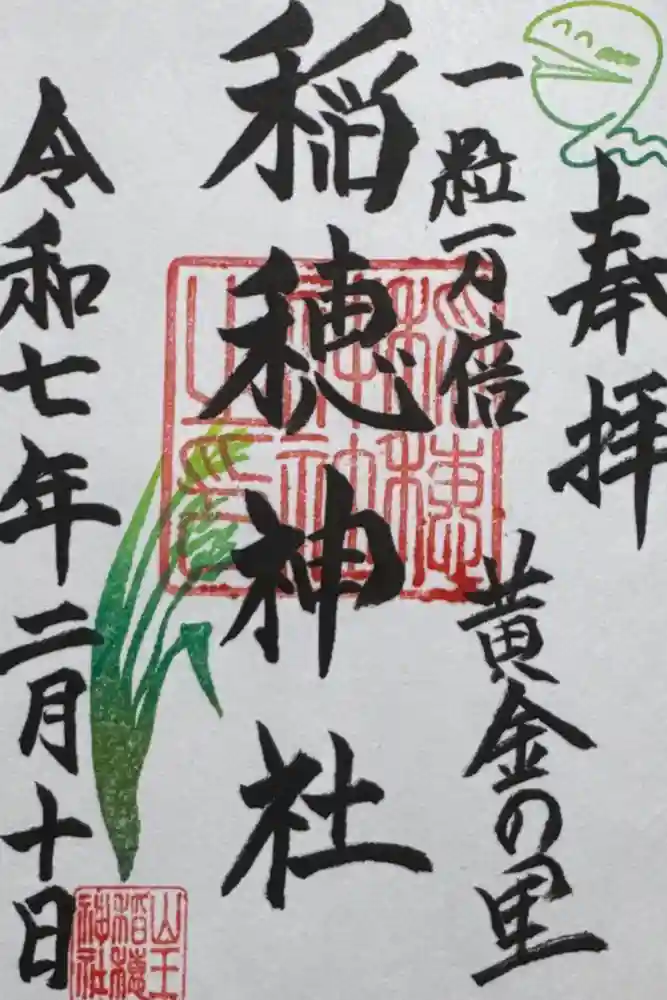 奉拝
一粒万倍
黄金の里
稲穂神社
令和七年二月十日
稲穂
神社
之印
山王
稲穂
神社